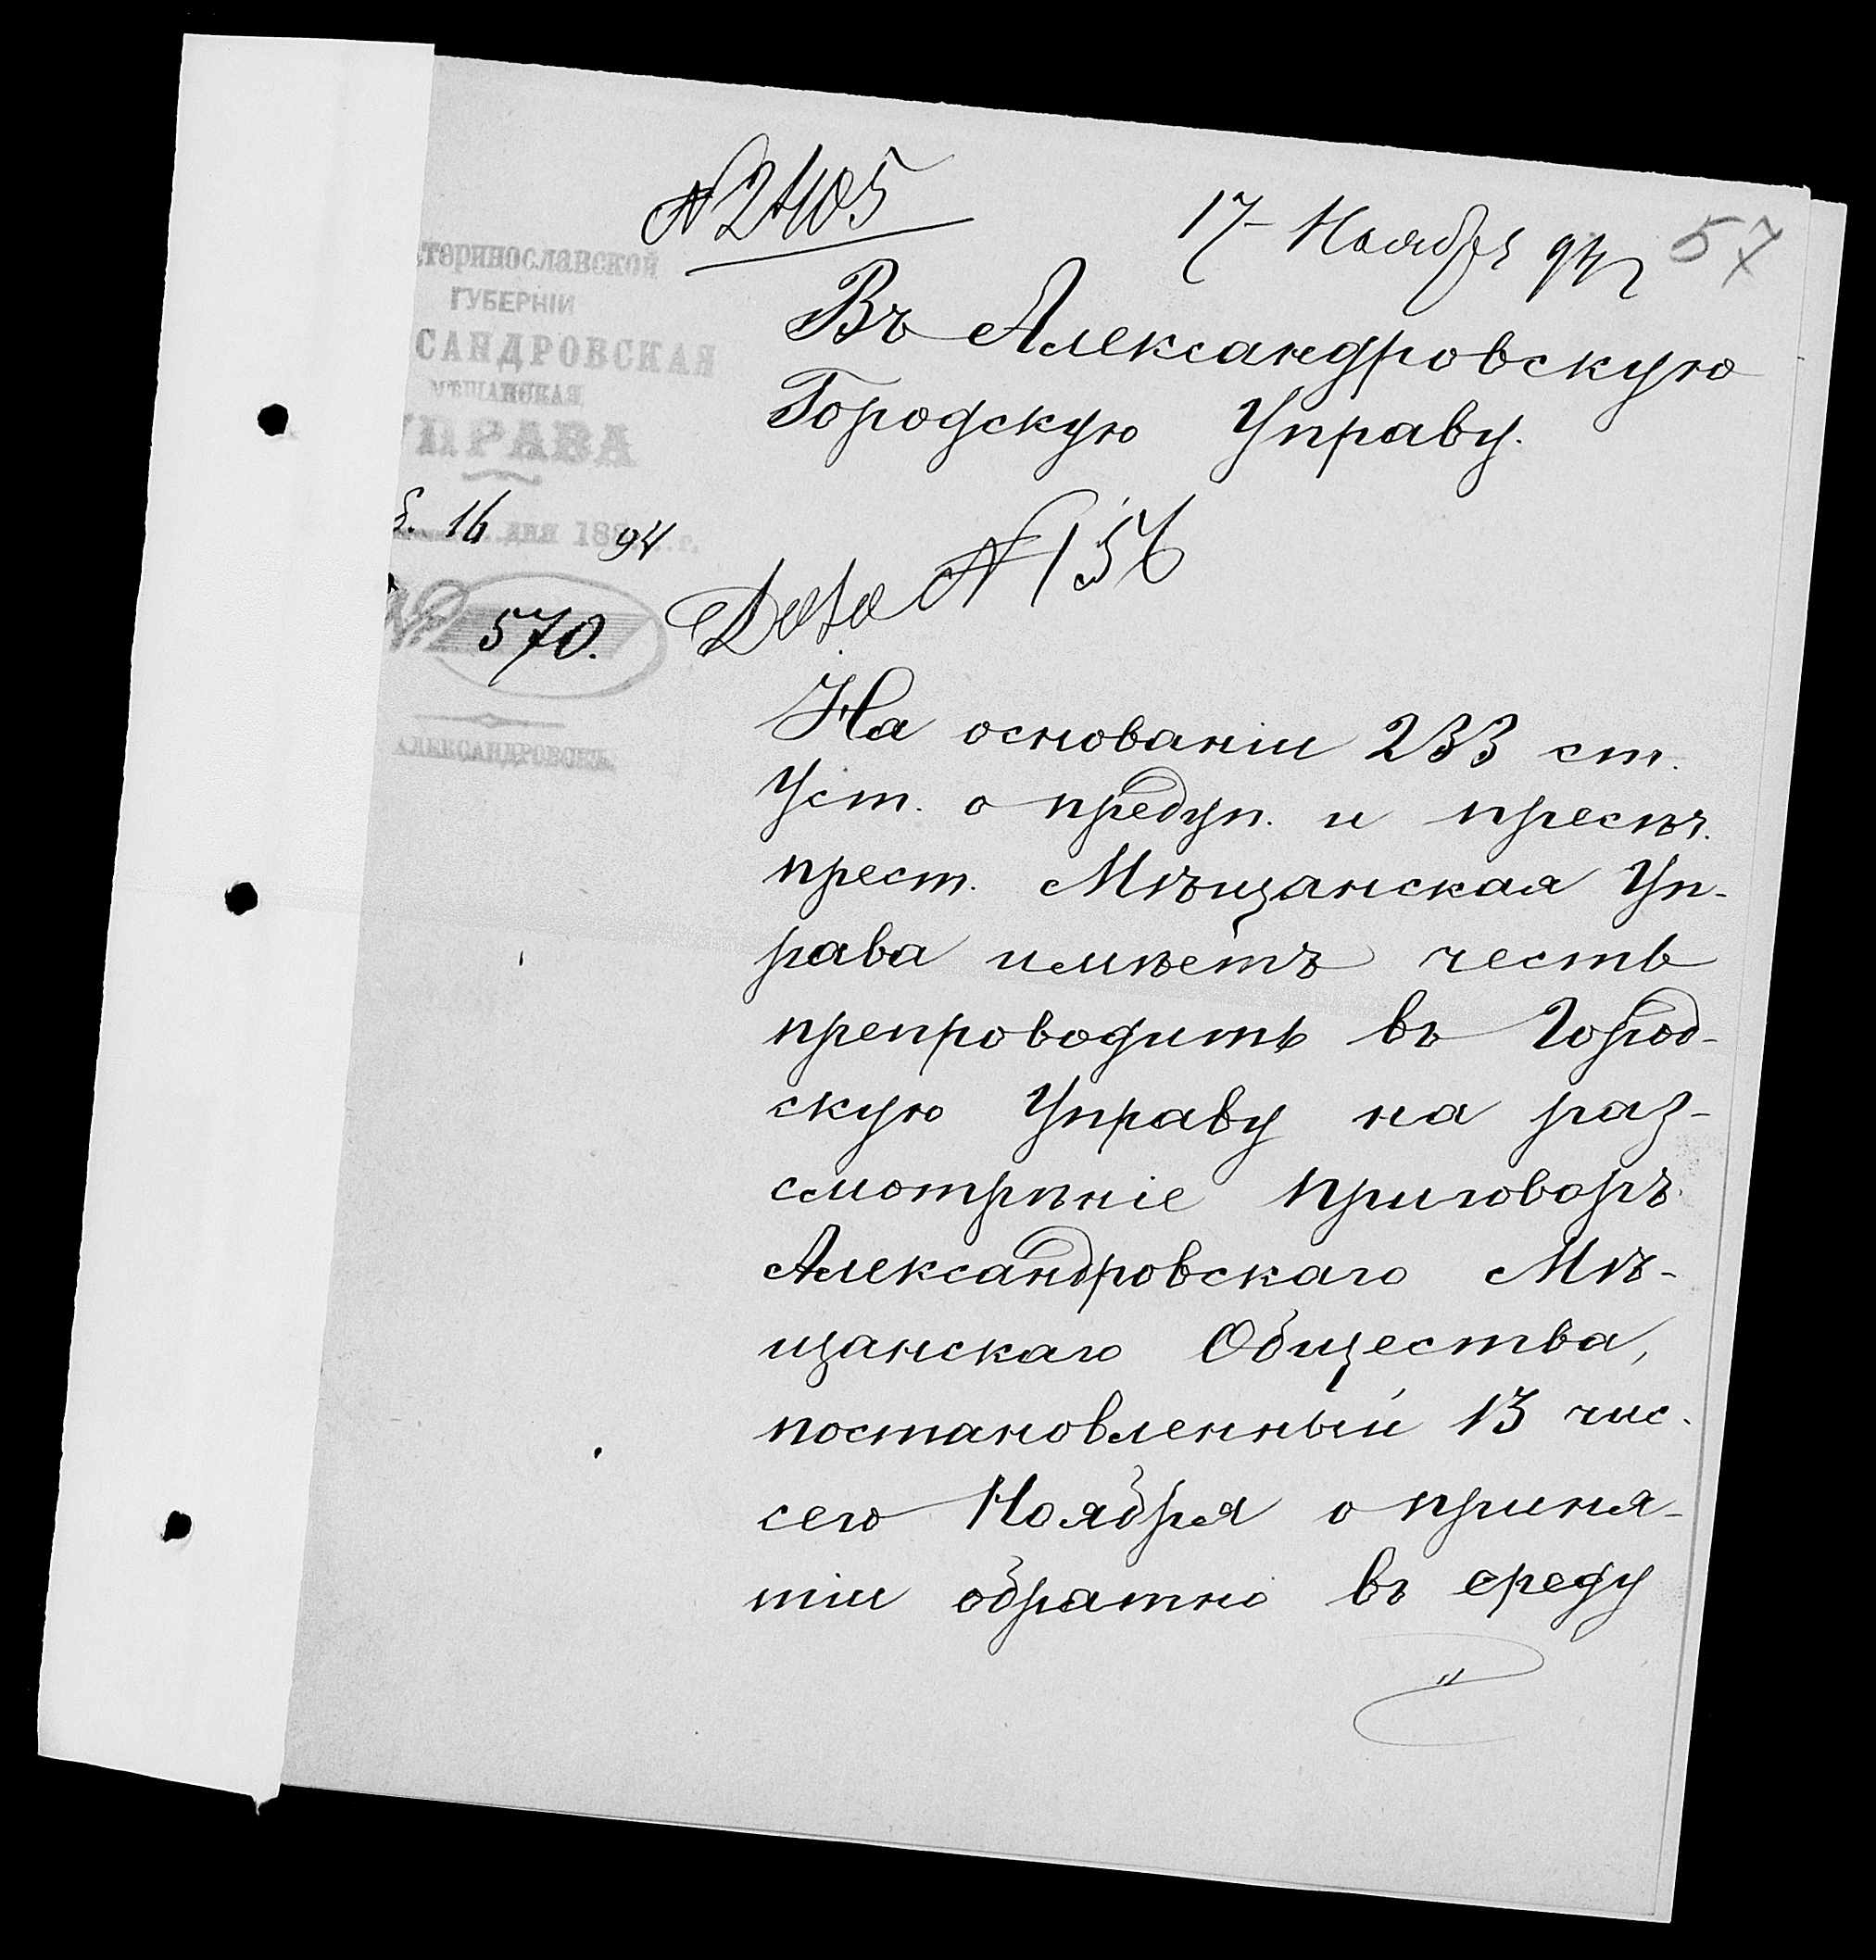 № 2405
17 Ноября 94 г
57
теринославской
ГУБЕРНІИ
САНДРОВСКАЯ
МѢЩАНСКАЯ
УПРАВА
16 дня 188 94 г.
№ 570.
АЛЕКСАНДРОВСКЪ.
Въ Александровскую
Городскую Управу.
Дѣло № 156
На основаніи 233 ст.
Уст. о предуп. и пресѣч.
прест. Мѣщанская Уп-
рава имѣетъ честь
препроводить въ Город-
скую Управу на раз-
смотрѣніе приговоръ
Александровскаго Мѣ-
щанскаго Общества,
постановленный 13 чис.
сего Ноября о приня-
тіи обратно въ среду